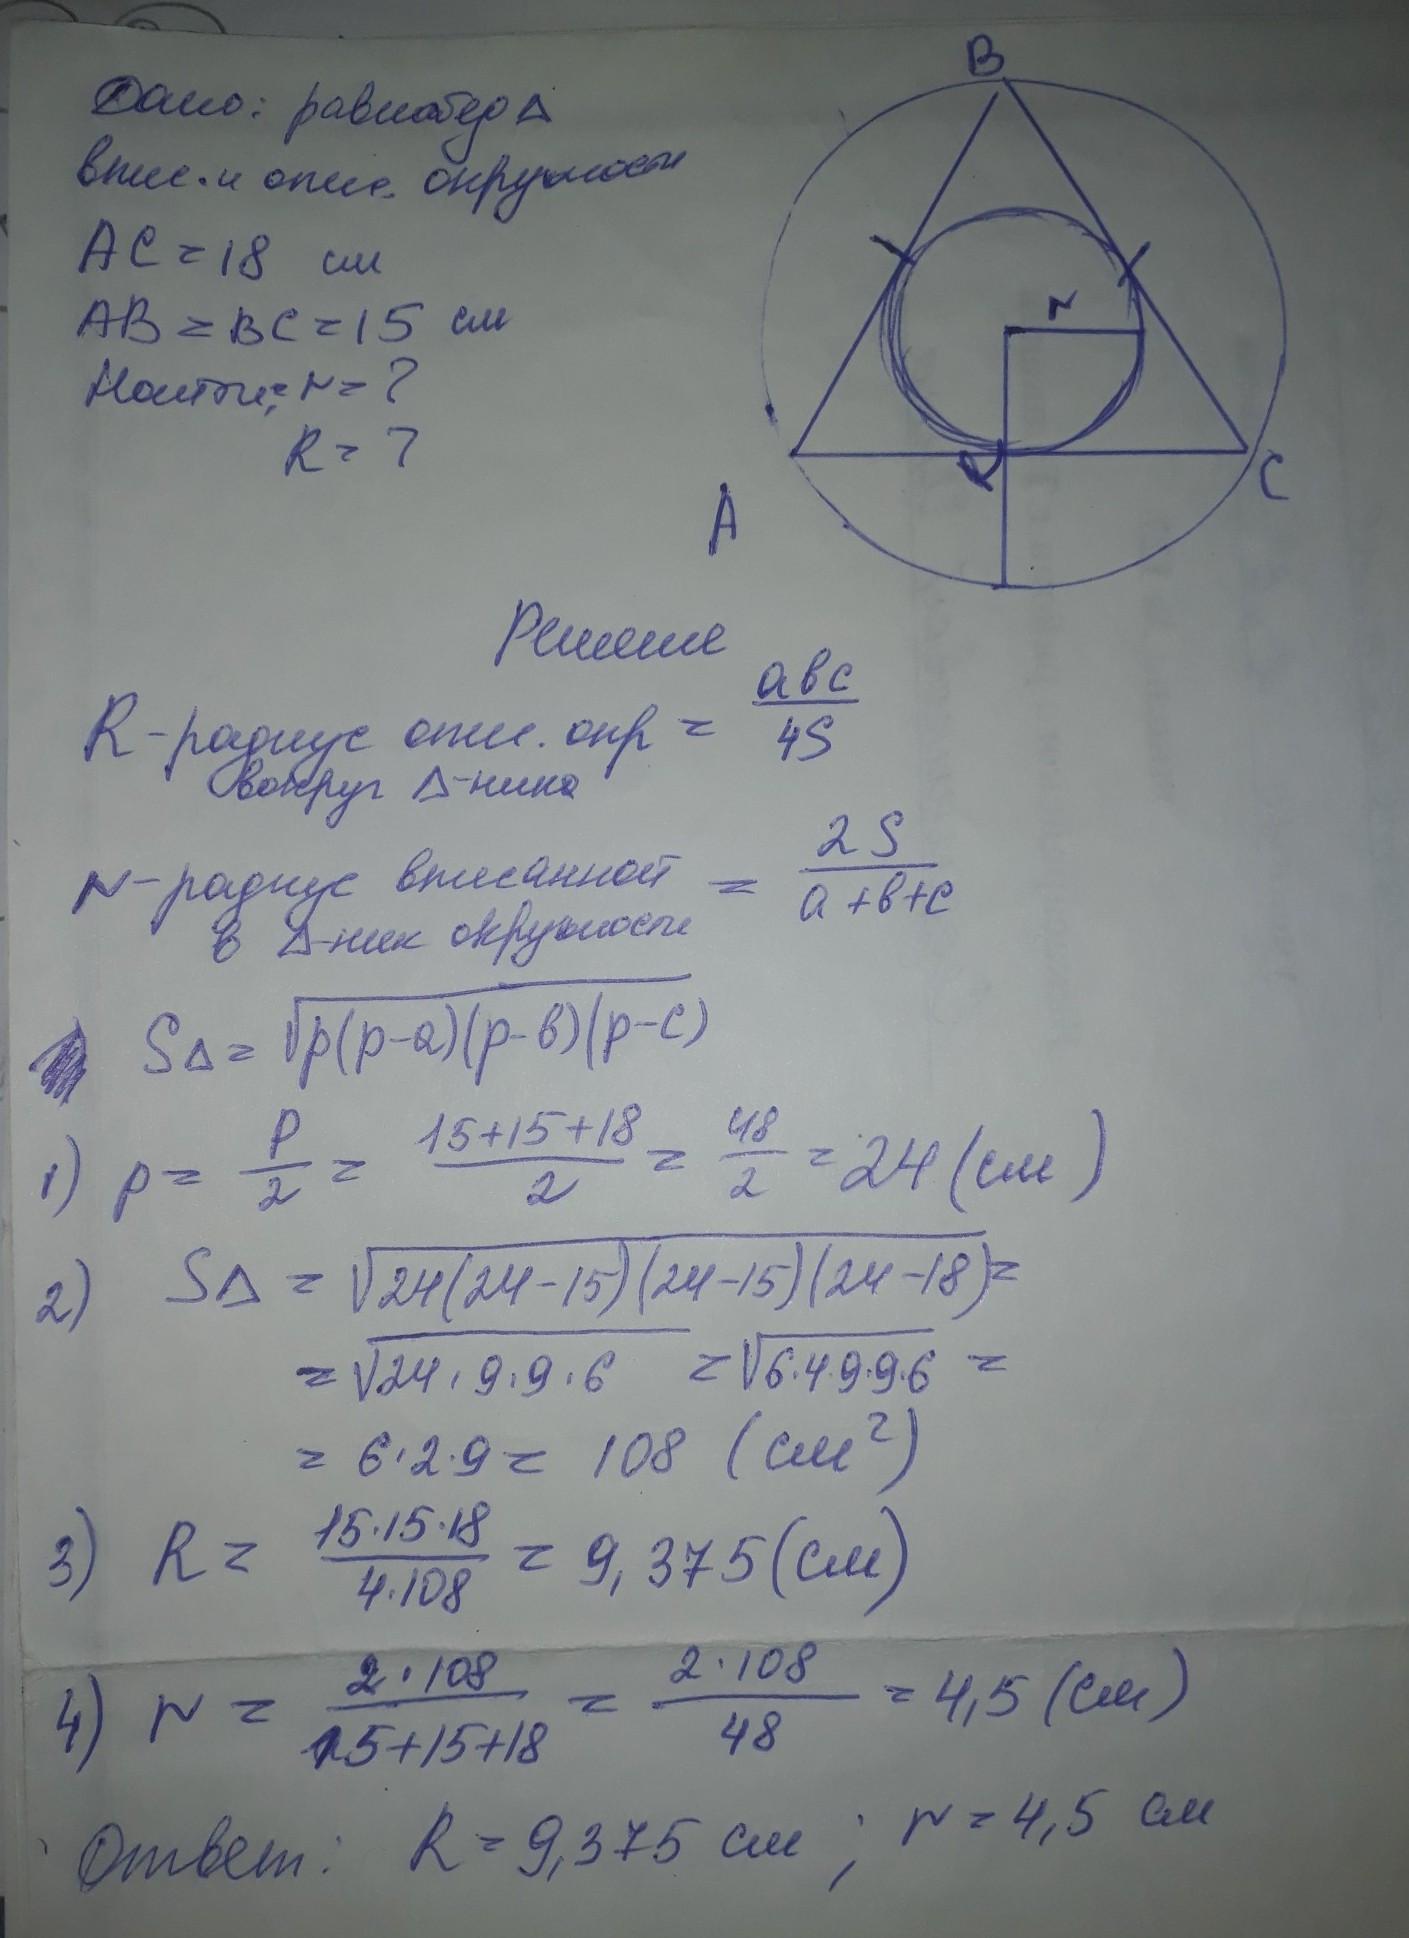 Дано: равнобедр Δ
B
впис. и опис. окружности
AC = 18 см
AB = BC = 15 см
r
Найти: r = ?
R = ?
R
C
A
Решение
R - радиус опис. окр = abc / 4S
вокруг Δ-ника
r - радиус вписанной = 2S / a+b+c
в Δ-ник окружности
SΔ = √p(p-a)(p-b)(p-c)
1) p = P/2 = 15+15+18 / 2 = 48/2 = 24 (см)
2) SΔ = √24(24-15)(24-15)(24-18) =
= √24·9·9·6 = √6·4·9·9·6 =
= 6·2·9 = 108 (см²)
3) R = 15·15·18 / 4·108 = 9,375 (см)
4) r = 2·108 / 15+15+18 = 2·108 / 48 = 4,5 (см)
Ответ: R = 9,375 см ; r = 4,5 см